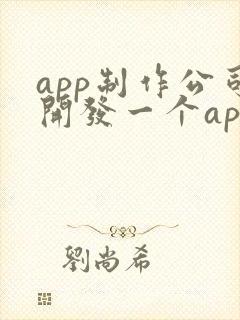 app制作公司
開發一个ap
劉尚希